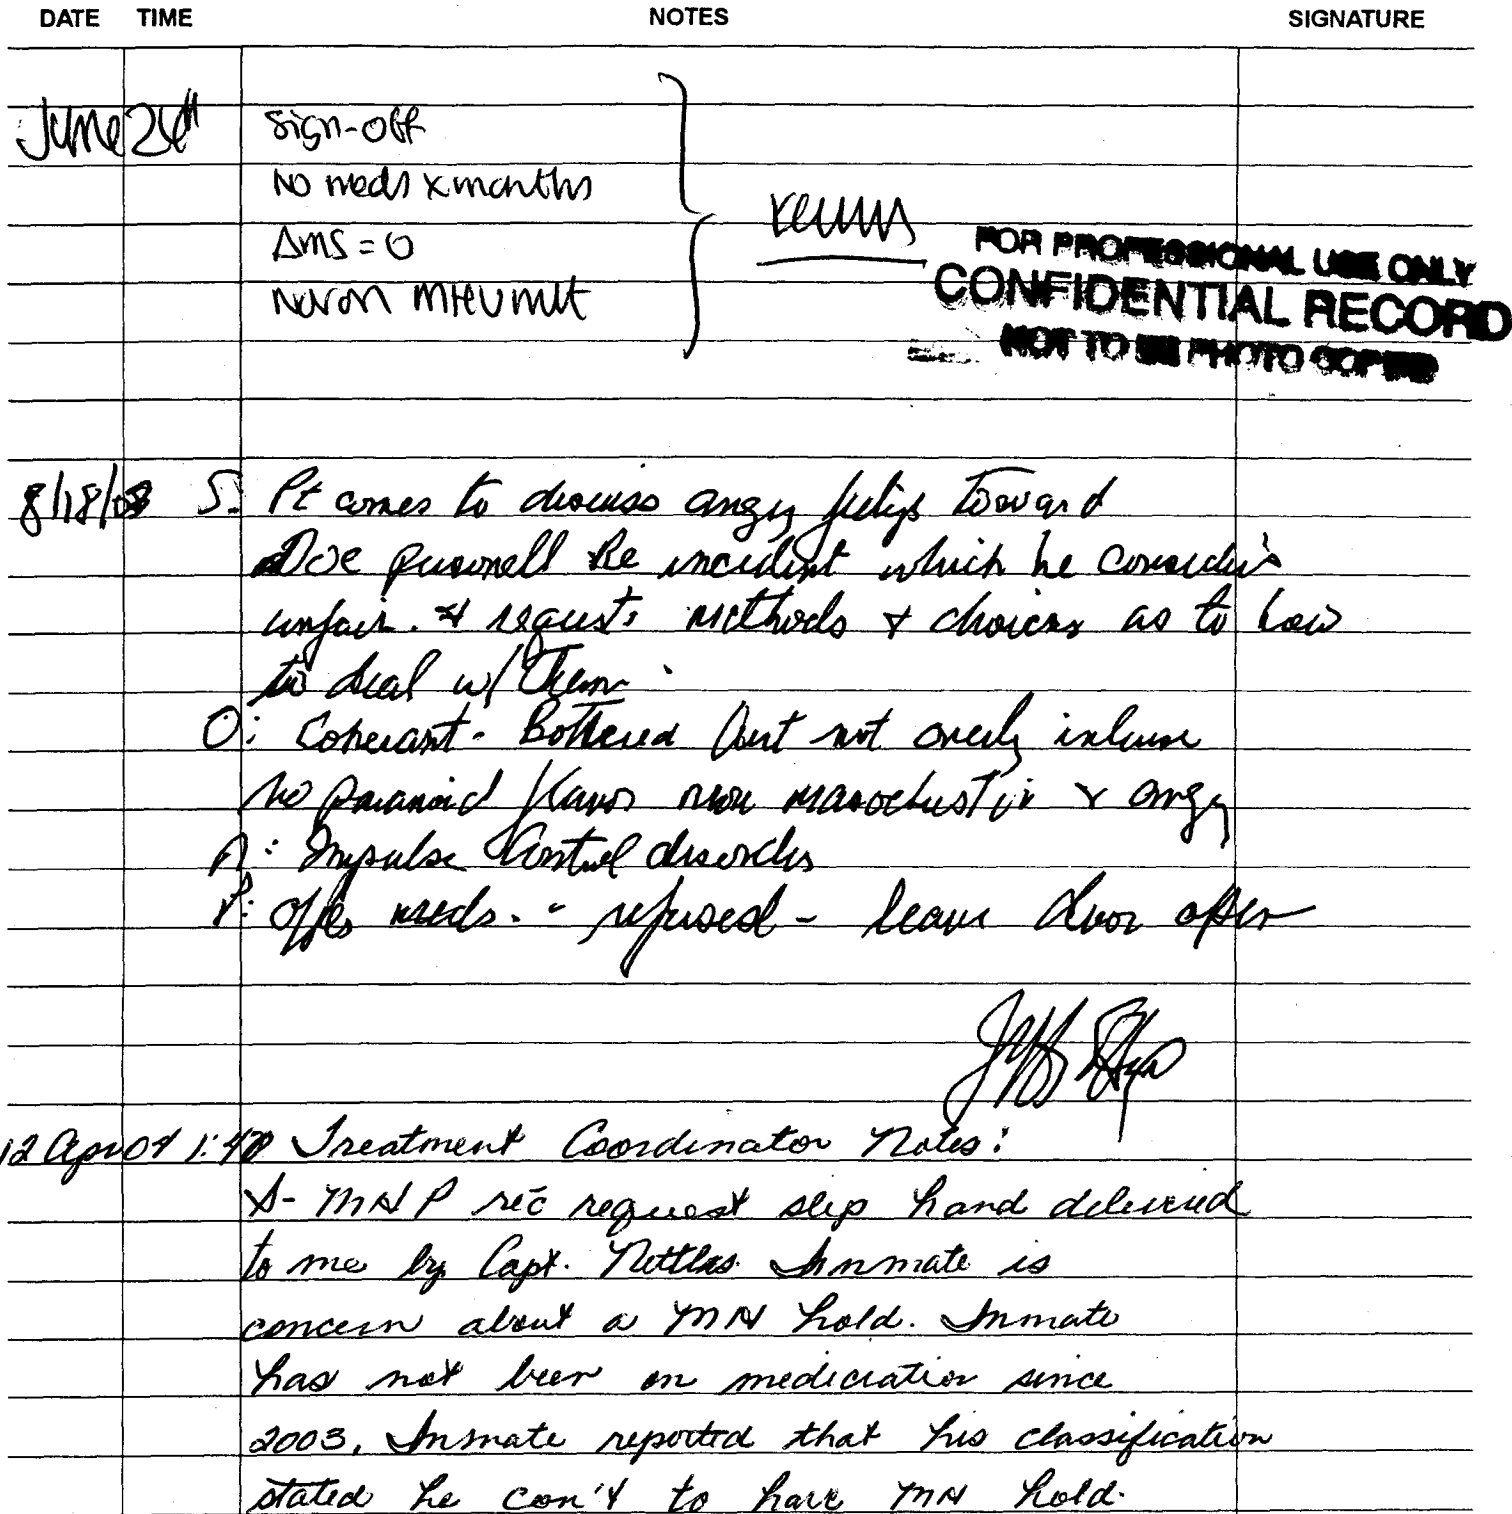 DATE TIME NOTES SIGNATURE
June 24th sign-off
No meds x months
ΔMS = 0
FOR PROFESSIONAL USE ONLY
CONFIDENTIAL RECORD
NOT TO BE PHOTO COPIED
8/18/03 S: Pt comes to discuss angry feelings toward
DOC personell Re incident which he considers
unfair. & requests methods & choices as to how
to deal w/ them.
O: Coherant - Bothered but not overly intense
No paranoid flavor more masochistic & angry
A: Impulse Control disorder
P: offer meds. - refused - leave door open
12 Apr 04 1:40 Treatment Coordinator Notes:
S- MHP rec request slip hand delivered
to me by Capt. Nettles. Inmate is
concern about a MH hold. Inmate
has not been on mediciation since
2003. Inmate reported that his classification
stated he con't to have MH hold.